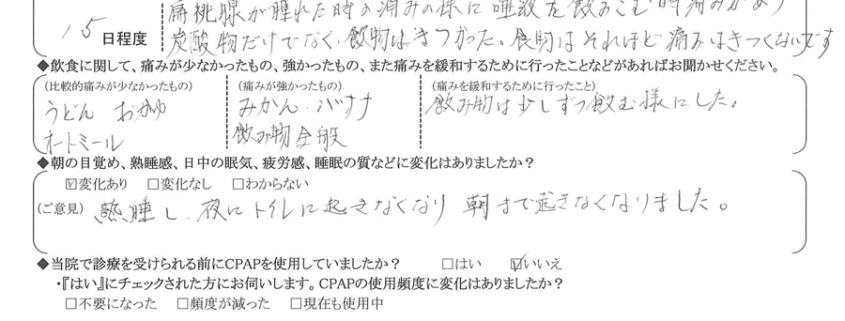 扁桃腺が腫れた時の痛みの様に唾液を飲みこむ時痛みがあり
15 日程度 炭酸物だけでなく、飲物はきつかった。食物はそれほど痛みはきつくないです
◆飲食に関して、痛みが少なかったもの、強かったもの、また痛みを緩和するために行ったことなどがあればお聞かせください。
(比較的痛みが少なかったもの) (痛みが強かったもの) (痛みを緩和するために行ったこと)
うどん おかゆ みかん、バナナ 飲み物は少しずつ飲む様にした。
オートミール 飲み物全般
◆朝の目覚め、熟睡感、日中の眠気、疲労感、睡眠の質などに変化はありましたか?
☑変化あり □変化なし □わからない
(ご意見) 熟睡し、夜にトイレに起きなくなり 朝まで起きなくなりました。
◆当院で診療を受けられる前にCPAPを使用していましたか? □はい ☑いいえ
・『はい』にチェックされた方にお伺いします。CPAPの使用頻度に変化はありましたか?
□不要になった □頻度が減った □現在も使用中